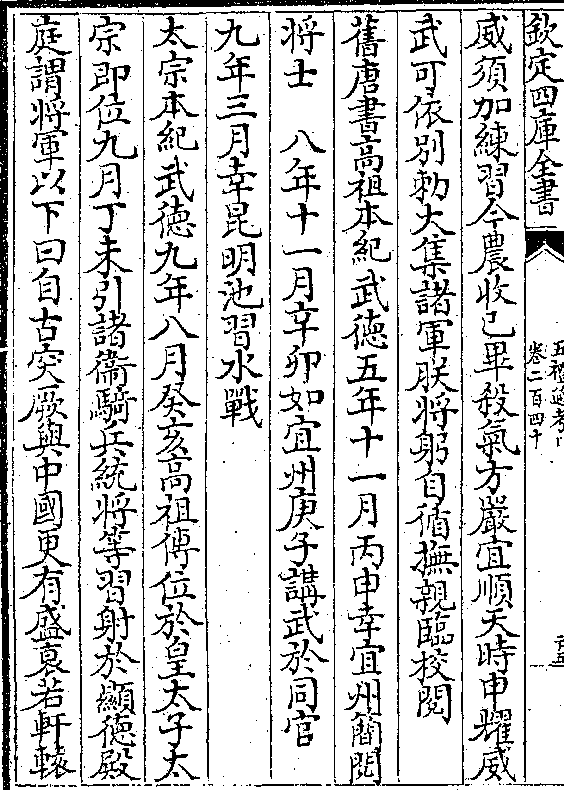 欽定四庫全書
五禮通考
卷二百四十
威須加練習今農收已畢殺氣方嚴宜順天時申耀威
武可依別勅大集諸軍朕將躬自循撫親臨校閱
舊唐書高祖本紀武德五年十一月丙申幸宜州簡閱
將士　八年十一月辛卯如宜州庚子講武於同官
九年三月幸昆明池習水戰
太宗本紀武德九年八月癸亥高祖傳位於皇太子太
宗即位九月丁未引諸衛騎兵統將等習射於顯德殿
庭謂將軍以下曰自古突厥與中國更有盛衰若軒轅